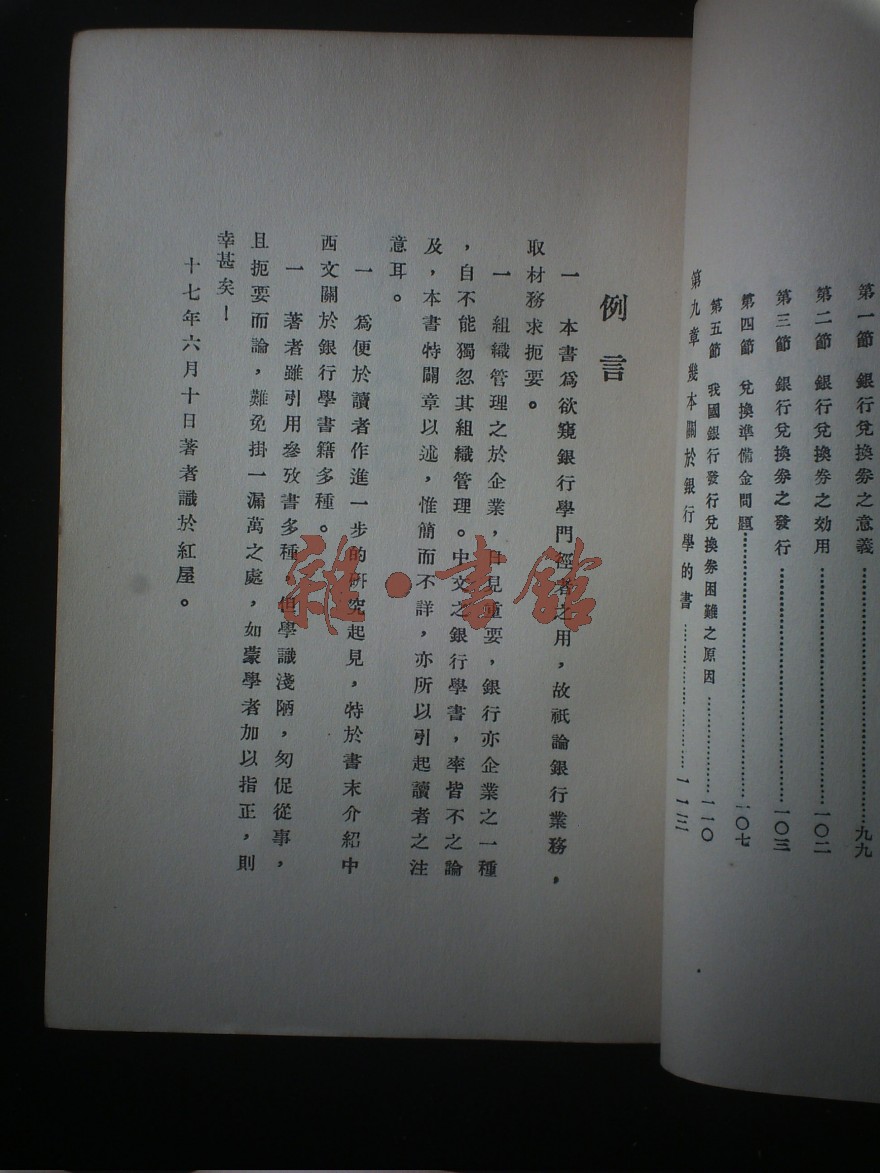 第一節　銀行兌換券之意義……九九
第二節　銀行兌換券之効用……一〇二
第三節　銀行兌換券之發行……一〇三
第四節　兌換準備金問題……一〇七
第五節　我國銀行發行兌換券困難之原因……一一〇
第九章　幾本關於銀行學的書……一一三
例言
一　本書爲欲窺銀行學門徑者之用，故祇論銀行業務，
取材務求扼要。
一　組織管理之於企業，日見重要，銀行亦企業之一種
，自不能獨忽其組織管理。中文之銀行學書，率皆不之論
及，本書特闢章以述，惟簡而不詳，亦所以引起讀者之注
意耳。
一　爲便於讀者作進一步的研究起見，特於書末介紹中
西文關於銀行學書籍多種。
一　著者雖引用參攷書多種，但學識淺陋，匆促從事，
且扼要而論，難免掛一漏萬之處，如蒙學者加以指正，則
幸甚矣！
十七年六月十日著者識於紅屋。
雜·書館